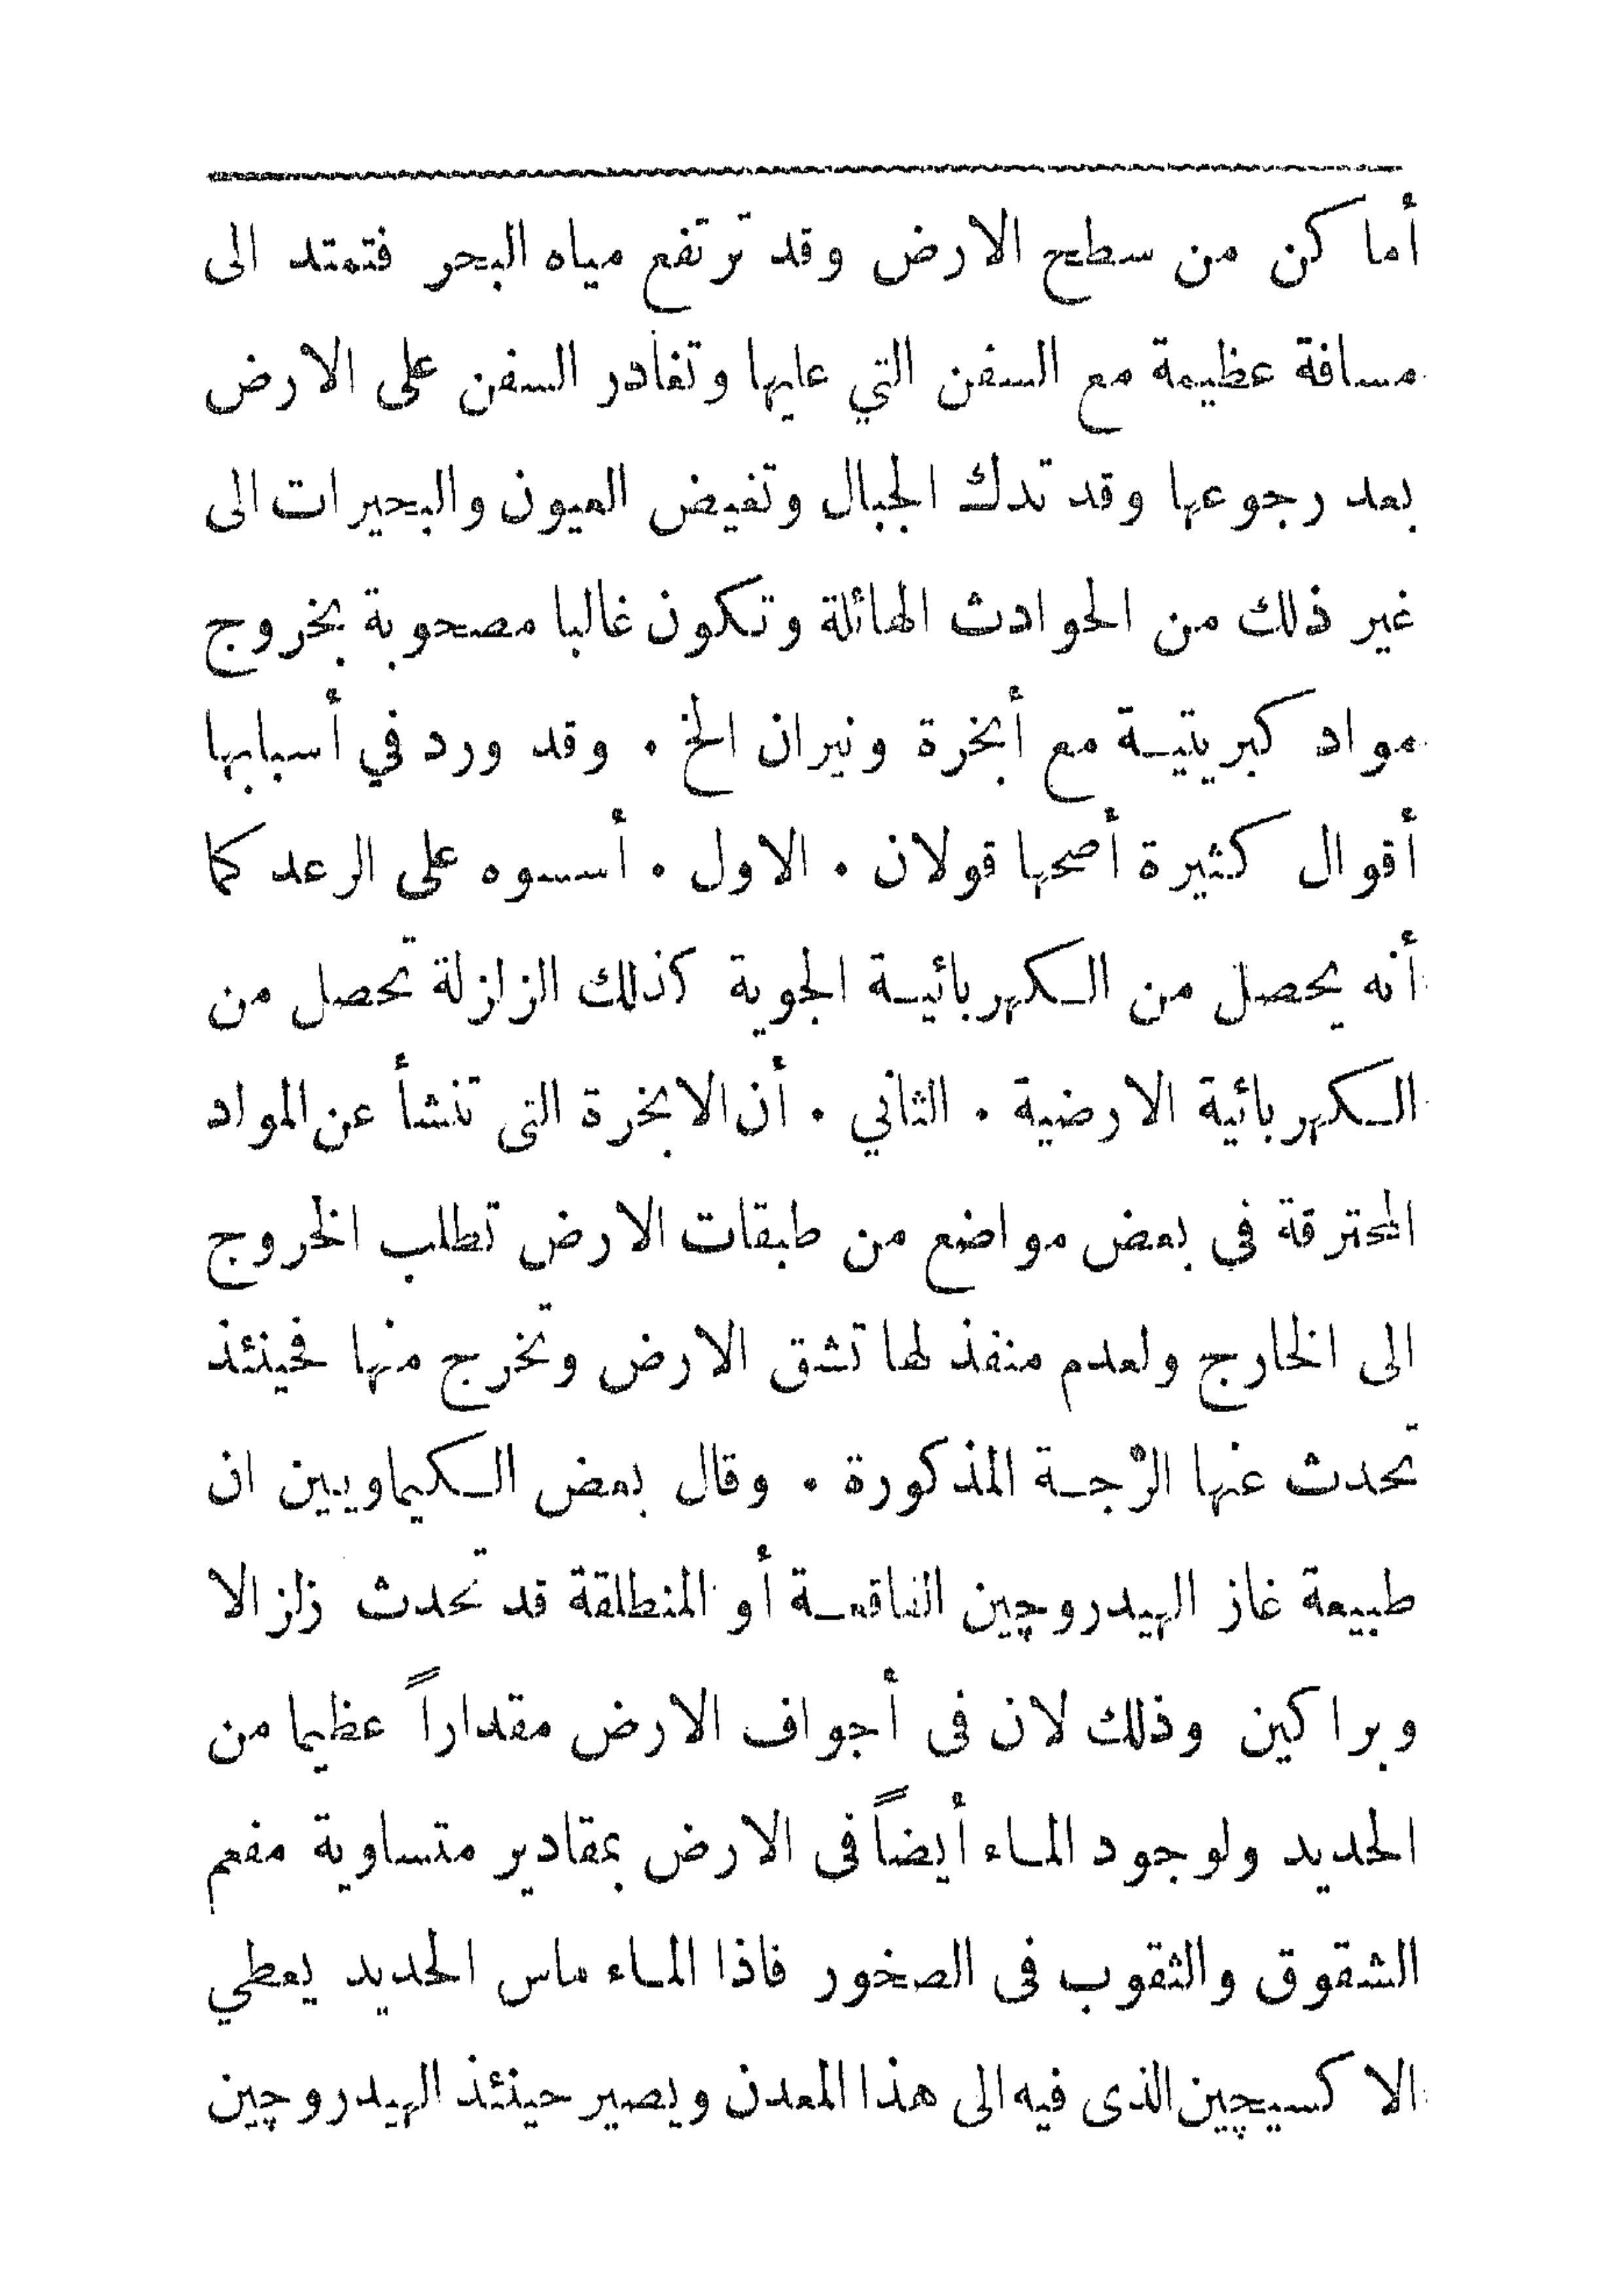 أماكن من سطح الارض وقد ترتفع مياه البحر فتمتد الى
مسافة عظيمة مع السفن التي عليها وتغادر السفن على الارض
بعد رجوعها وقد تدك الجبال وتفيض العيون والبحيرات الى
غير ذلك من الحوادث الهائلة وتكون غالبا مصحوبة بخروج
مواد كبريتيـة مع أبخرة ونيران الخ . وقد ورد في أسبابها
أقوال كثيرة أصحها قولان . الاول . أسسوه على الرعد كما
أنه يحصل من الـكهربائيـة الجوية كذلك الزلزلة تحصل من
الـكهربائية الارضية . الثاني . أن الابخرة التى تنشأ عن المواد
المحترقة فى بعض مواضع من طبقات الارض تطلب الخروج
الى الخارج ولعدم منفذ لها تشق الارض وتخرج منها فحينئذ
تحدث عنها الرّجـة المذكورة . وقال بعض الـكيماويين ان
طبيعة غاز الهيدروچين الفاقعـة أو المنطلقة قد تحدث زلزالا
وبراكين وذلك لان فى أجواف الارض مقداراً عظيما من
الحديد ولوجود المـاء أيضاً فى الارض بمقادير متساوية مفعم
الشقوق والثقوب فى الصخور فاذا المـاء ماس الحديد يعطي
الاكسيچين الذى فيه الى هذا المعدن ويصير حينئذ الهيدروچين